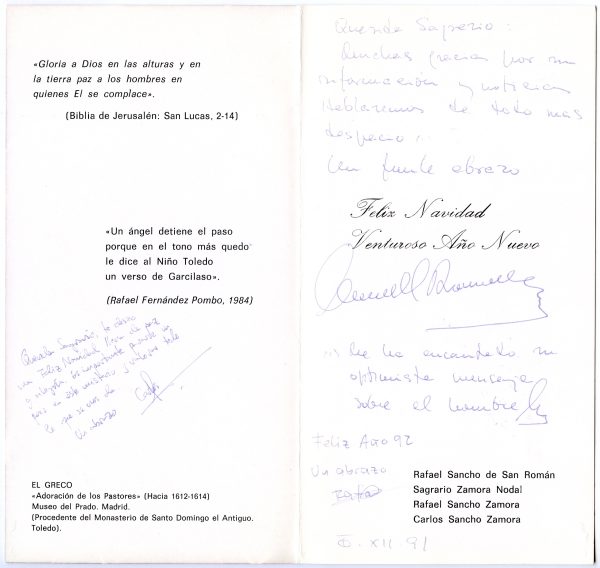 «Gloria a Dios en las alturas y en
la tierra paz a los hombres en
quienes El se complace».
(Biblia de Jerusalén: San Lucas, 2-14)
«Un ángel detiene el paso
porque en el tono más quedo
le dice al Niño Toledo
un verso de Garcilaso».
(Rafael Fernández Pombo, 1984)
un Feliz Navidad llena de paz
Un abrazo
EL GRECO
«Adoración de los Pastores» (Hacia 1612-1614)
Museo del Prado. Madrid.
(Procedente del Monasterio de Santo Domingo el Antiguo.
Toledo).
Querido Sagrario:
Muchas gracias por su
información y noticias
Hablaremos de todo más
despacio...
Un fuerte abrazo
Feliz Navidad
Venturoso Año Nuevo
Me ha encantado su
optimista mensaje
sobre el hombre
Feliz Año 92
Un abrazo
Rafael Sancho de San Román
Sagrario Zamora Nodal
Rafael Sancho Zamora
Carlos Sancho Zamora
XII-91